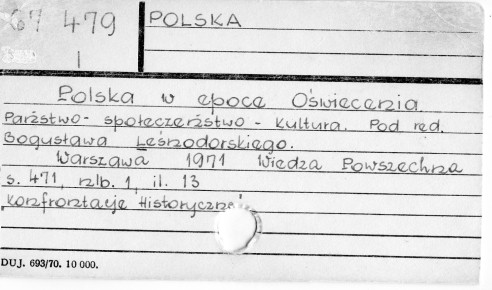 67 479 POLSKA
I
Polska w epoce Oświecenia.
Państwo - społeczeństwo - kultura. Pod red.
Bogusława Leśnodorskiego.
Warszawa 1971 Wiedza Powszechna
s. 471, nlb. 1, il. 13
Konfrontacje Historyczne
DUJ. 693/70. 10 000.